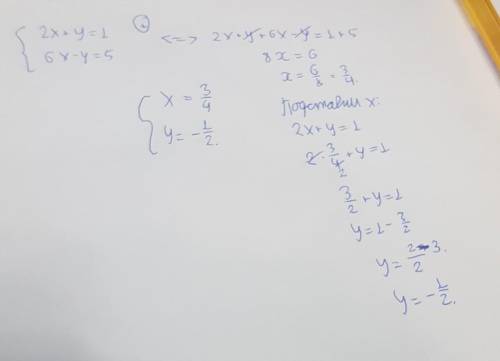 { 2x+y=1 (+) <=> 2x+y+6x-y=1+5
6x-y=5
8x=6
x=6/8=3/4.
{ x=3/4
y=-1/2.
Подставим x:
2x+y=1
2·3/4+y=1
2
3/2+y=1
y=1-3/2
y=2-3/2.
y=-1/2.